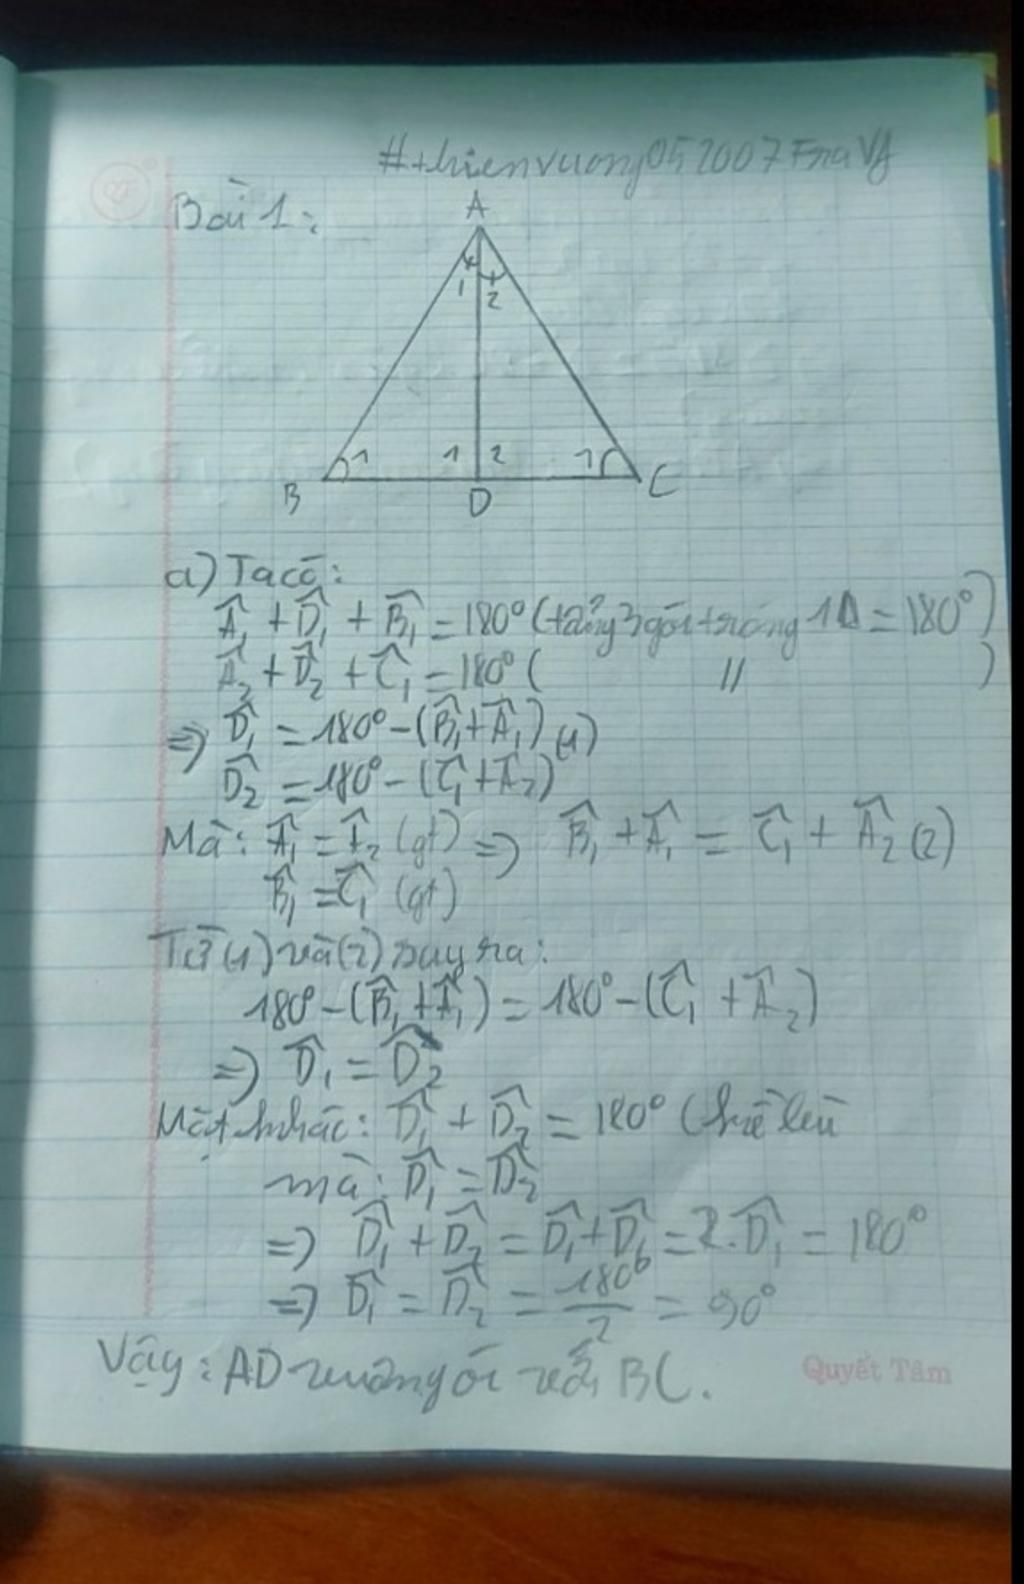 #thienvuong052007
Bài 1:
A
1 2
1 1 2 1
B D C
a) Ta có:
Â₁ + D̂₁ + B̂₁ = 180° (tổng 3 góc trong 1Δ = 180°)
Â₂ + D̂₂ + Ĉ₁ = 180° ( // )
=> D̂₁ = 180° - (B̂₁ + Â₁) (1)
D̂₂ = 180° - (Ĉ₁ + Â₂)
Mà: Â₁ = Â₂ (gt) => B̂₁ + Â₁ = Ĉ₁ + Â₂ (2)
B̂₁ = Ĉ₁ (gt)
Từ (1) và (2) suy ra:
180° - (B̂₁ + Â₁) = 180° - (Ĉ₁ + Â₂)
=> D̂₁ = D̂₂
Mặt khác: D̂₁ + D̂₂ = 180° (kề bù
mà: D̂₁ = D̂₂
=> D̂₁ + D̂₂ = D̂₁ + D̂₁ = 2. D̂₁ = 180°
=> D̂₁ = D̂₂ = 180°/2 = 90°
Vậy: AD vuông óc với BC.
Quyết Tâm